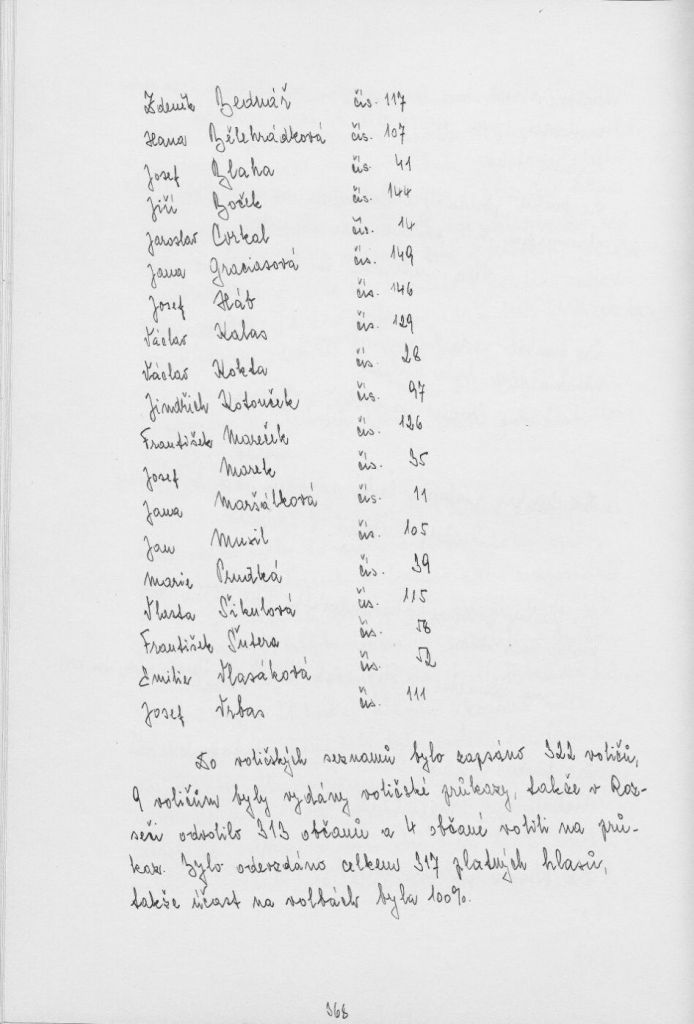 Zdeněk Bednář čís. 117
Hana Bělehrádková čís. 107
Josef Blaha čís. 41
Jiří Boček čís. 144
Jaroslav Corkal čís. 14
Jana Graciasová čís. 149
Josef Háb čís. 146
Václav Kalas čís. 129
Václav Kokta čís. 28
Jindřich Kotouček čís. 97
František Mareček čís. 126
Josef Marek čís. 35
Jana Maršálková čís. 11
Jan Musil čís. 105
Marie Prudká čís. 39
Vlasta Šikulová čís. 115
František Šutera čís. 58
Emilie Vlasáková čís. 52
Josef Vrbas čís. 111
Do voličských seznamů bylo zapsáno 322 voličů,
9 voličům byly vydány voličské průkazy, takže v Roz-
seči odvolilo 313 občanů a 4 občané volili na prů-
kaz. Bylo odevzdáno celkem 317 platných hlasů,
takže účast na volbách byla 100%.
368